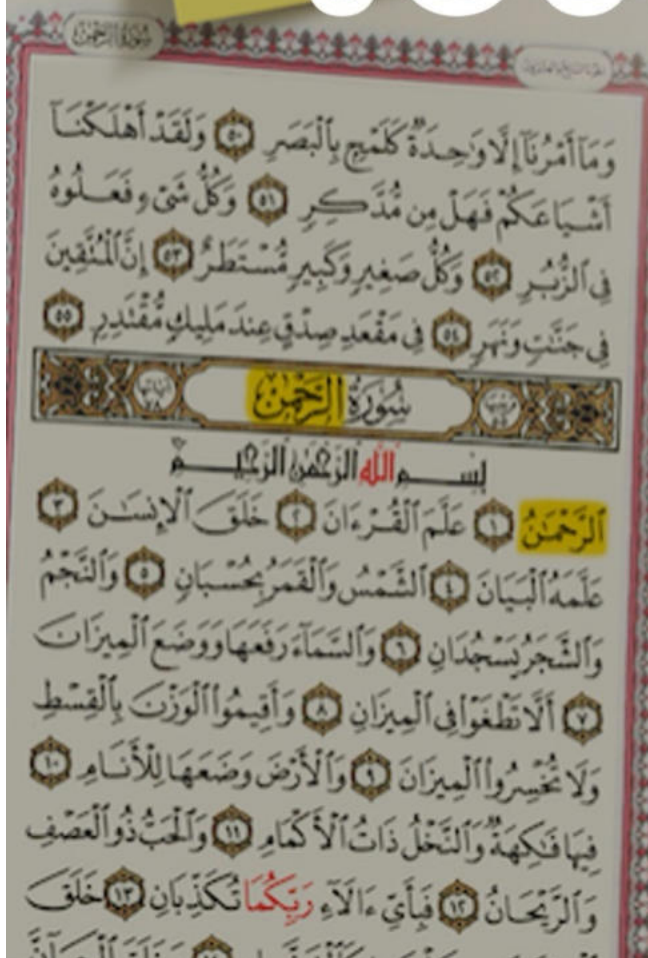 سُورَةُ الرَّحْمَٰنِ
وَمَآ أَمْرُنَآ إِلَّا وَٰحِدَةٌ كَلَمْحٍۭ بِٱلْبَصَرِ ٥٠ وَلَقَدْ أَهْلَكْنَآ
أَشْيَاعَكُمْ فَهَلْ مِن مُّدَّكِرٍ ٥١ وَكُلُّ شَىْءٍ فَعَلُوهُ
فِى ٱلزُّبُرِ ٥٢ وَكُلُّ صَغِيرٍ وَكَبِيرٍ مُّسْتَطَرٌ ٥٣ إِنَّ ٱلْمُتَّقِينَ
فِى جَنَّٰتٍ وَنَهَرٍ ٥٤ فِى مَقْعَدِ صِدْقٍ عِندَ مَلِيكٍ مُّقْتَدِرٍۭ ٥٥
سُورَةُ الرَّحْمَٰنِ
بِسْمِ ٱللَّهِ ٱلرَّحْمَٰنِ ٱلرَّحِيمِ
ٱلرَّحْمَٰنُ ١ عَلَّمَ ٱلْقُرْءَانَ ٢ خَلَقَ ٱلْإِنسَٰنَ ٣
عَلَّمَهُ ٱلْبَيَانَ ٤ ٱلشَّمْسُ وَٱلْقَمَرُ بِحُسْبَانٍ ٥ وَٱلنَّجْمُ
وَٱلشَّجَرُ يَسْجُدَانِ ٦ وَٱلسَّمَآءَ رَفَعَهَا وَوَضَعَ ٱلْمِيزَانَ
٧ أَلَّا تَطْغَوْا۟ فِى ٱلْمِيزَانِ ٨ وَأَقِيمُوا۟ ٱلْوَزْنَ بِٱلْقِسْطِ
وَلَا تُخْسِرُوا۟ ٱلْمِيزَانَ ٩ وَٱلْأَرْضَ وَضَعَهَا لِلْأَنَامِ ١٠
فِيهَا فَٰكِهَةٌ وَٱلنَّخْلُ ذَاتُ ٱلْأَكْمَامِ ١١ وَٱلْحَبُّ ذُو ٱلْعَصْفِ
وَٱلرَّيْحَانُ ١٢ فَبِأَىِّ ءَالَآءِ رَبِّكُمَا تُكَذِّبَانِ ١٣ خَلَقَ